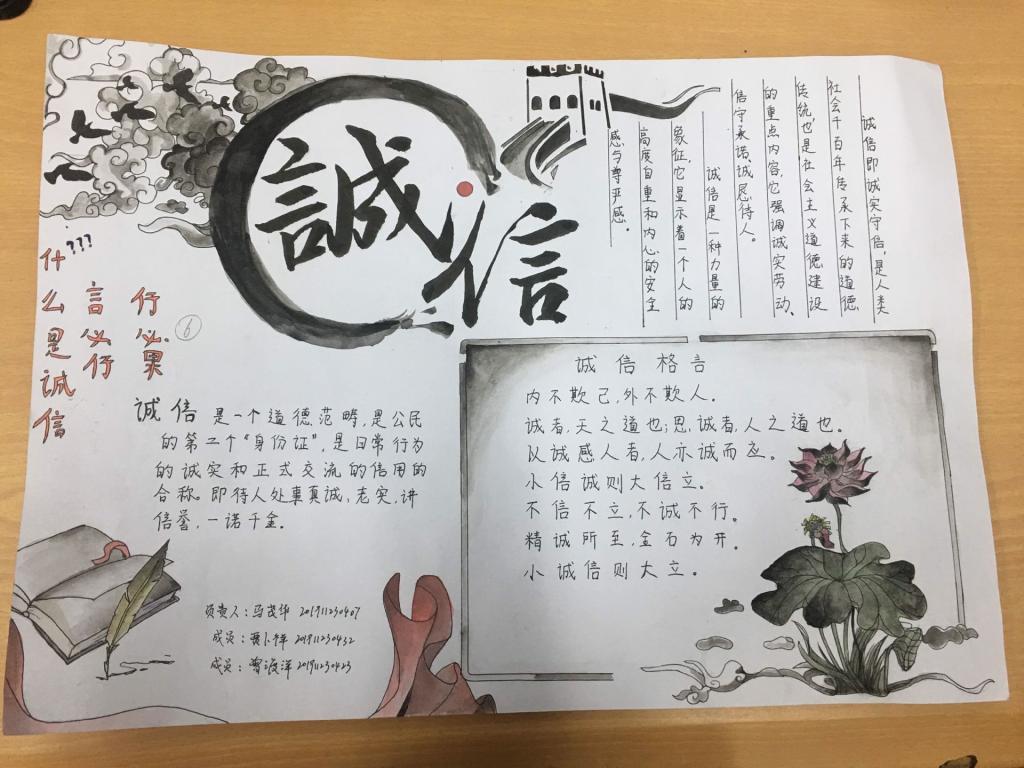 誠信
???
什么是诚信
言必行
行必果
6
诚信即诚实守信,是人类
社会千百年传承下来的道德
传统,也是社会主义道德建设
的重点内容,它强调诚实劳动、
信守承诺,诚恳待人。
诚信是一种力量的
象征,它显示着一个人的
高度自重和内心的安全
感与尊严感。
诚信是一个道德范畴,是公民
的第二个“身份证”,是日常行为
的诚实和正式交流的信用的
合称。即待人处事真诚,老实,讲
信誉,一诺千金。
诚信格言
内不欺己,外不欺人。
诚者,天之道也;思诚者,人之道也。
以诚感人者,人亦诚而应。
小信诚则大信立。
不信不立,不诚不行。
精诚所至,金石为开。
小诚信则大立。
负责人:马茂华 201911230407
成员: 201911230432
成员:曹 洋 201911230423